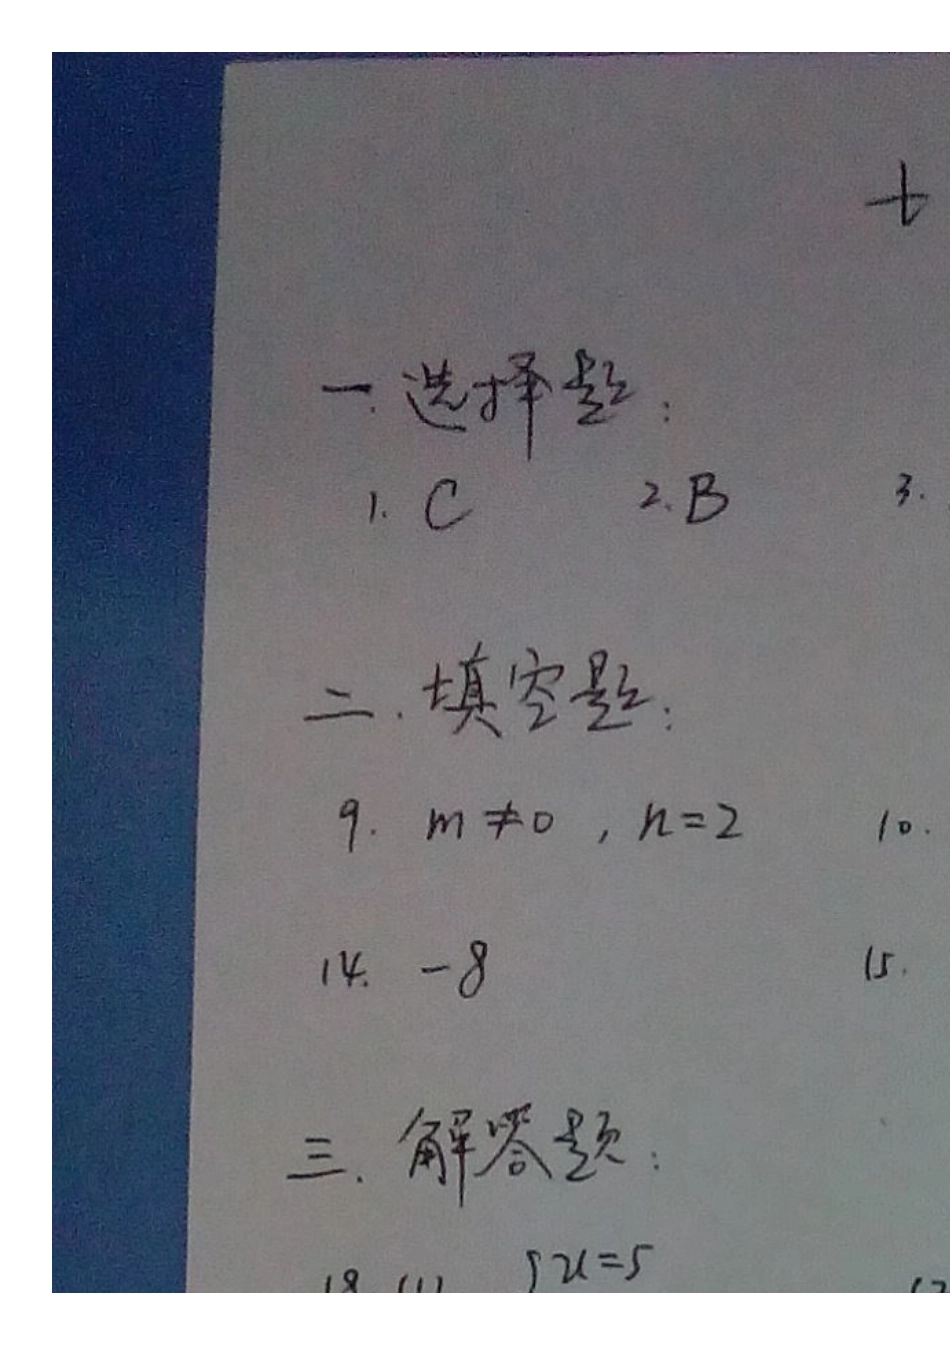 七
一.选择题:
1. C 2. B 3.
二.填空题:
9. m≠0 , n=2 10.
14. -8 15.
三.解答题:
x=5
18. (1)